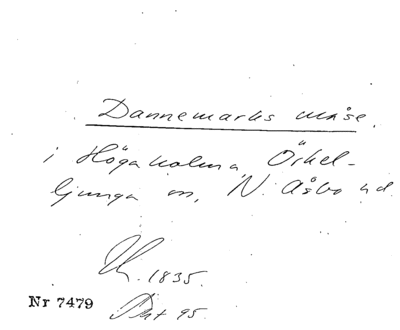 Dannemarks måse.
i Högaholma, Örkel-
ljunga sn, N. Åsbo hd.
1835.
Nr 7479
95.